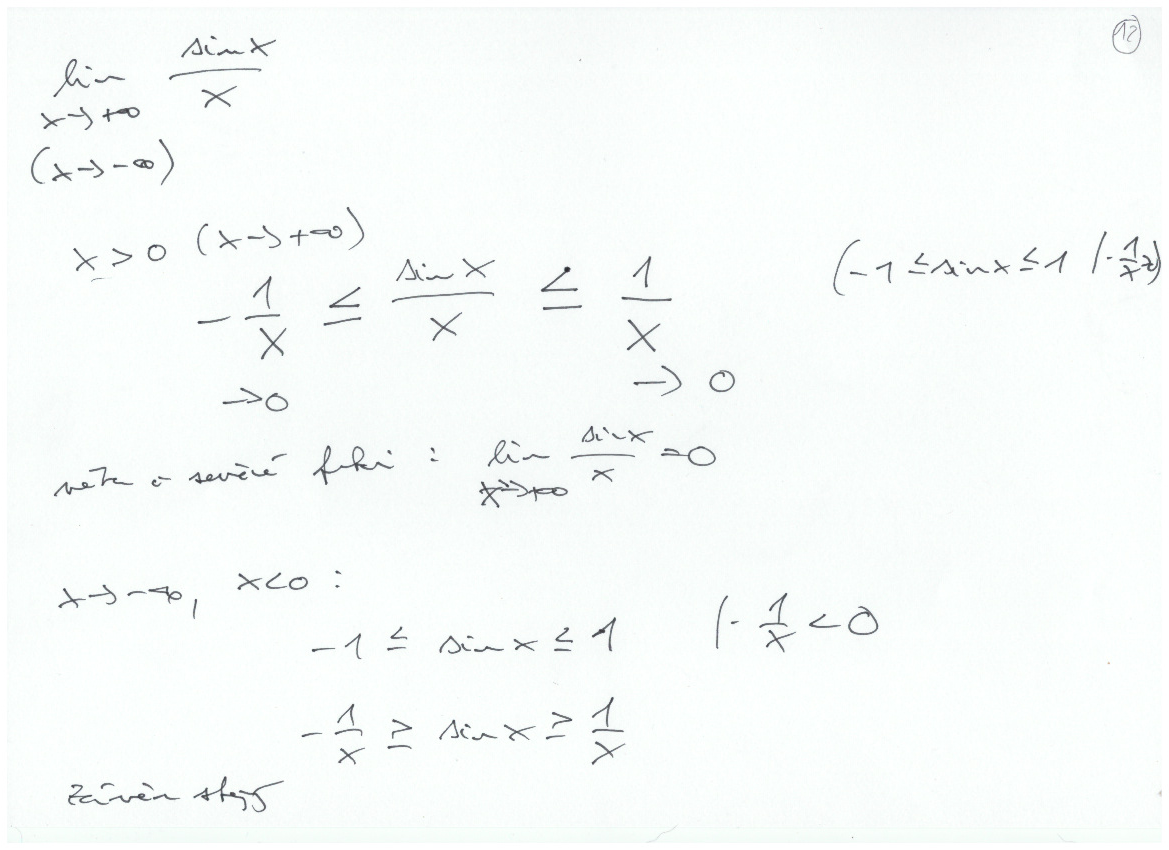 12
lim sinx/x
x→+∞
(x→-∞)
x>0 (x→+∞)
-1/x ≤ sinx/x ≤ 1/x (-1≤sinx≤1 /·1/x
→0 →0
věta o sevřené fukci : lim sinx/x =0
x→+∞
x→-∞, x<0 :
-1 ≤ sinx ≤ 1 /· 1/x <0
-1/x ≥ sinx ≥ 1/x
závěr stejný